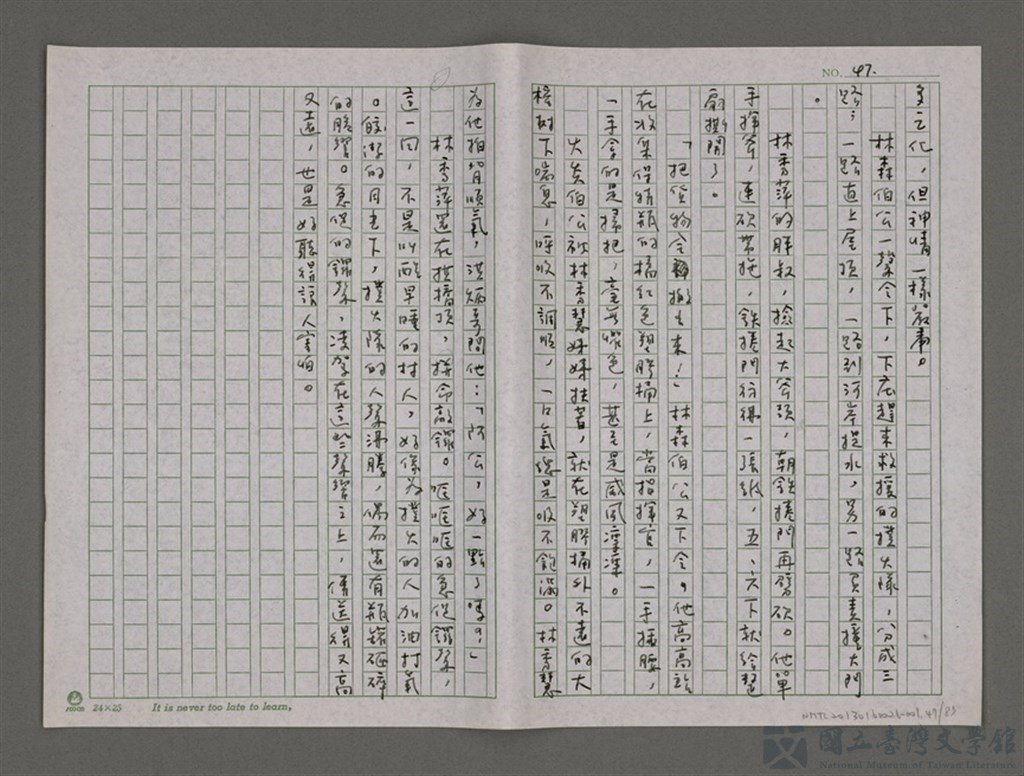 NO. 47.
多之化，但神情一樣嚴肅。
林森伯公一聲令下，下底趕來救援的撲火隊，分成三
路；一路直上屋頂，一路到河岸提水，另一路負責撞大門
。
林秀萍的胖叔，撿起大斧頭，朝鐵捲門再劈砍。他單
手揮斧，連砍帶拖，鐵捲門彷彿一張紙，五、六下就給整
扇撕開了。
「把貨物全搬出來！」林森伯公又下令，他高高站
在收集保特瓶的橘紅色塑膠桶上，當指揮官，一手插腰，
一手拿的是掃把，毫無愧色，甚至是威風凜凜。
火炎伯公被林秀慧妹妹扶著，就在塑膠桶外不遠的大
榕樹下喘息，呼吸不調順，一口氣總是吸不飽滿。林秀慧
為他拍背順氣，洪炳哥問他：「阿公，好一點了嗎？」
林秀萍還在拱橋頂，拼命敲鑼。哐哐哐的急促鑼聲，
這一回，不是叫醒早睡的村人，好像為撲火的人加油打氣
。皎潔的月色下，撲火隊的人聲沸騰，偶而還有瓶罐砸碎
的聲響。急促的鑼聲，凌駕在這些聲響之上，傳送得又高
又遠，也是好聽得讓人害怕。
24×25 It is never too late to learn.
NMTL20130160026-001 49/83
國立臺灣文學館
National Museum of Taiwan Literature